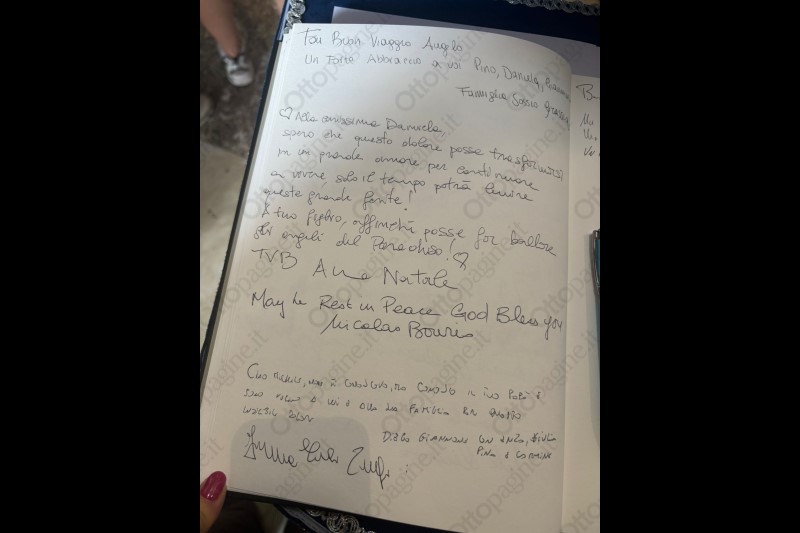 Fai Buon Viaggio Angelo
Un Forte Abbraccio a voi Pino, Daniela,
Famiglia
♡ Alla carissima Daniela,
spero che questo dolore possa trasformarsi
in un grande amore per continuare
a vivere solo il tempo potrà lenire
questa grande ferita!
A tuo figlio, affinché possa far ballare
gli angeli del Paradiso! ♡
TVB Anna Natale
May he Rest in Peace God Bless you
Nicolas Bouris
Ciao Michele, non ti conoscevo, ma conosco il tuo papà e
sono vicino a lui e alla sua famiglia in questo
Diego Giannone con Enza, Giulia
Pina e Carmine
Ottopagine.it